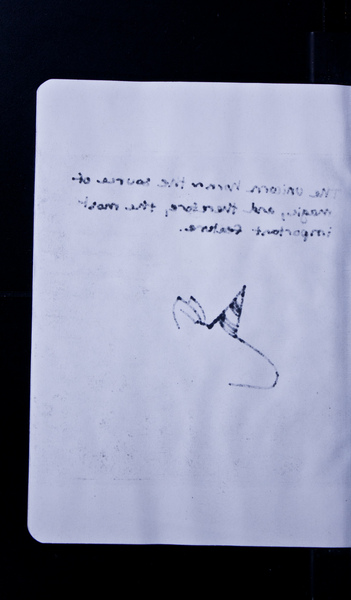 The unicorn horn the source of
magic, and therefore, the most
important feature.